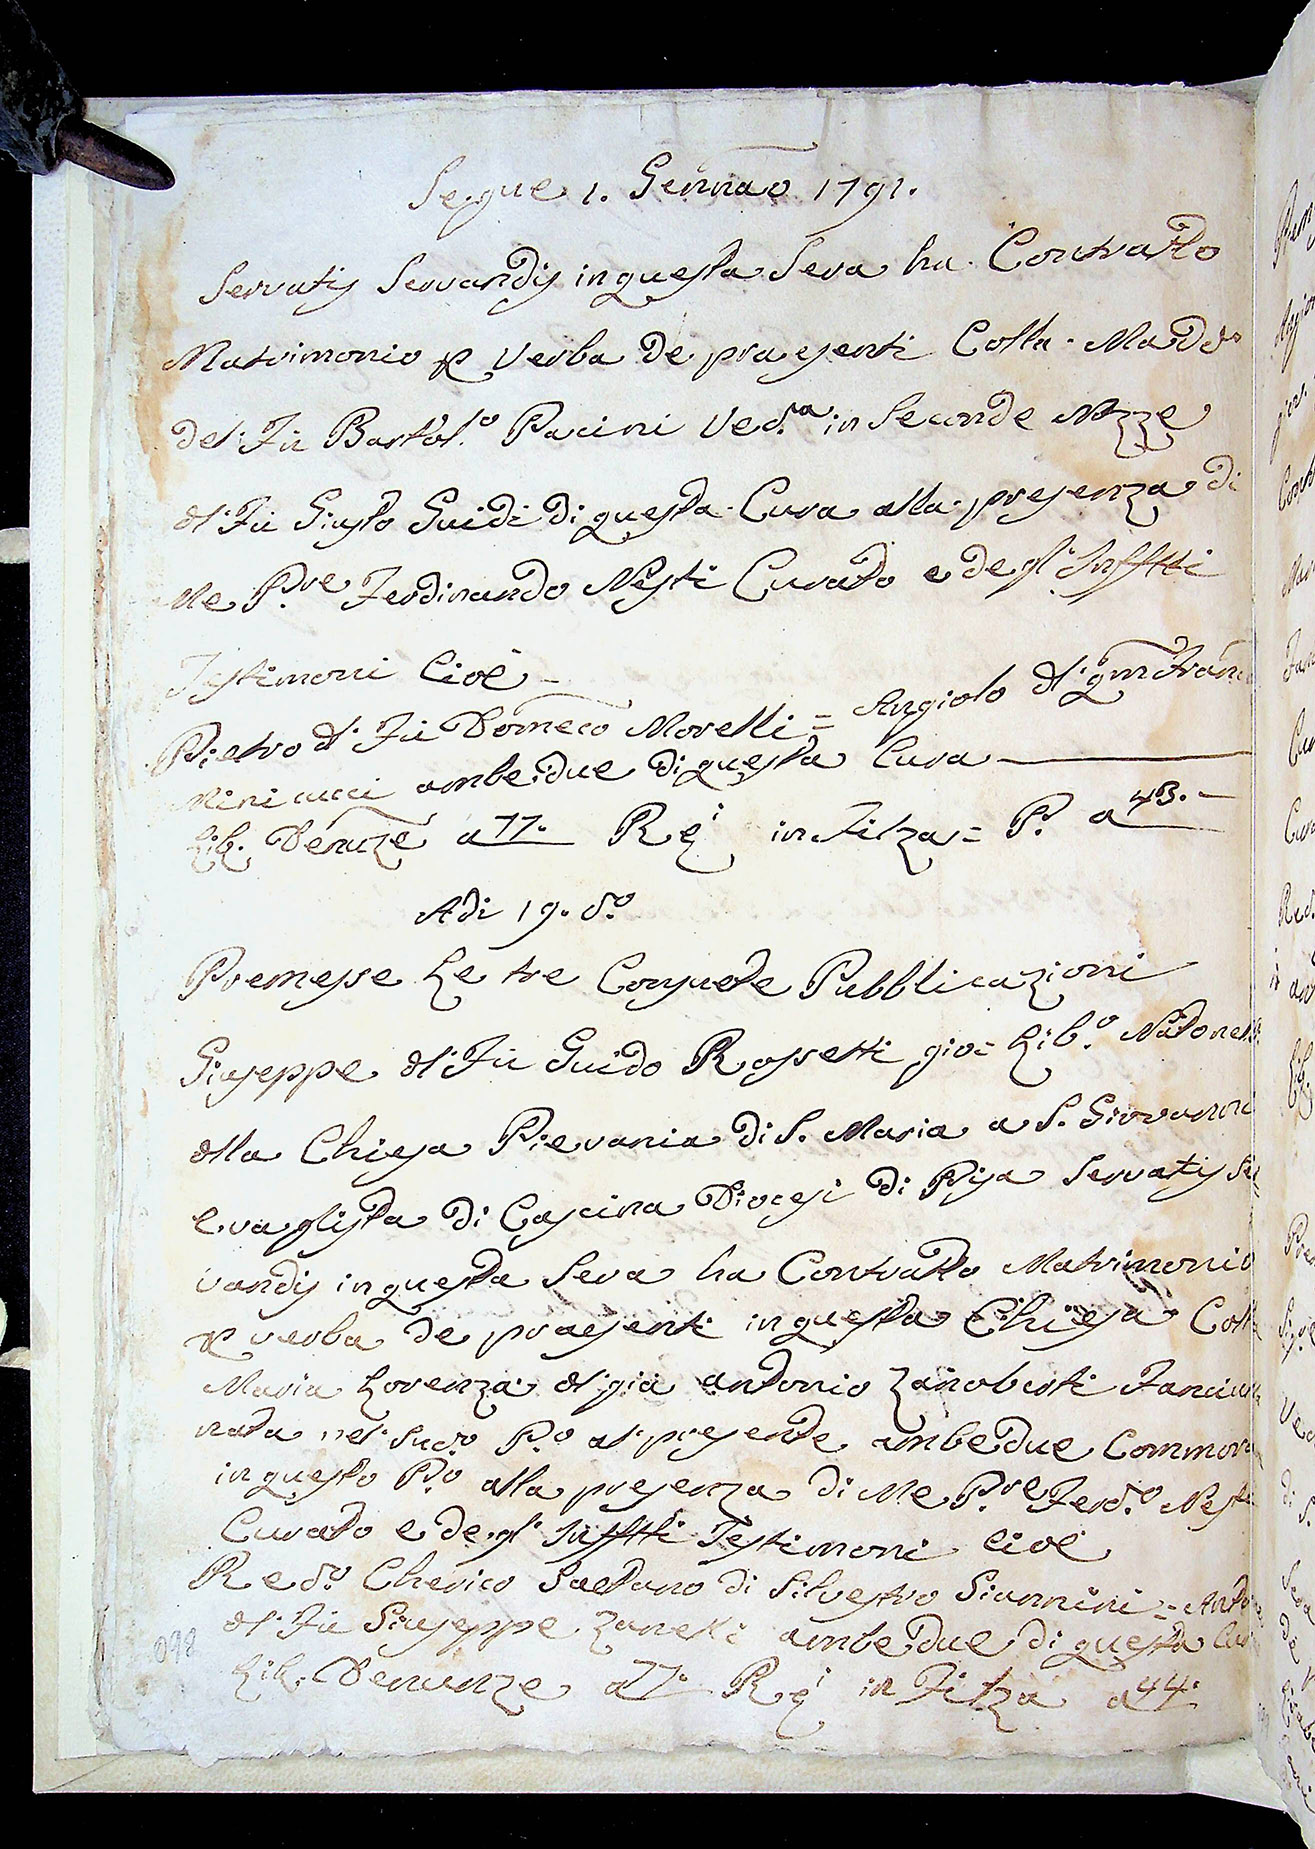 Segue 1. Gennaο 1791.
Servatis Servandis in questa Sera ha Contratto
Matrimonio p Verba de praesenti Colla Madda
del Fù Bartol.o Pacini Ved.a in Seconde Nozze
dl Fù Giusto Guidi di questa Cura alla presenza di
Me P.re Ferdinando Nesti Curato e degl' Infftti
Testimoni Cioè
Pietro dl Fù Domeco Morelli = Angiolo dl qm Franc
Minicucci ambedue di questa Cura
Lib. Denunze a 77. R in Filza = P. a 43.
Adi 19. d.o
Premesse Le tre Consuete Pubblicazioni
Giuseppe dl Fù Guido Rossetti gio= Lib.o Nato nel
dlla Chiesa Pievania di S. Maria a S. Giovanni
Evaglista di Cascina Diocesi di Pisa Servatis Ser
vandis in questa Sera ha Contratto Matrimonio
p verba de praesenti in questa Chiesa Colla
Maria Lorenza dl già Antonio Zanoberti Fanciulla
nata nel Sud.o P.o al presente ambedue Commora
in questo P.o alla presenza di Me P.re Ferd.o Nesti
Curato e degl' Infftti Testimoni cioè
Red.o Cherico Gaetano di Silvestro Giannini = Anto
dl Fù Giuseppe Zanetti ambedue di questa Cura
Lib. Denunze a 77. R in Filza a 44.
098